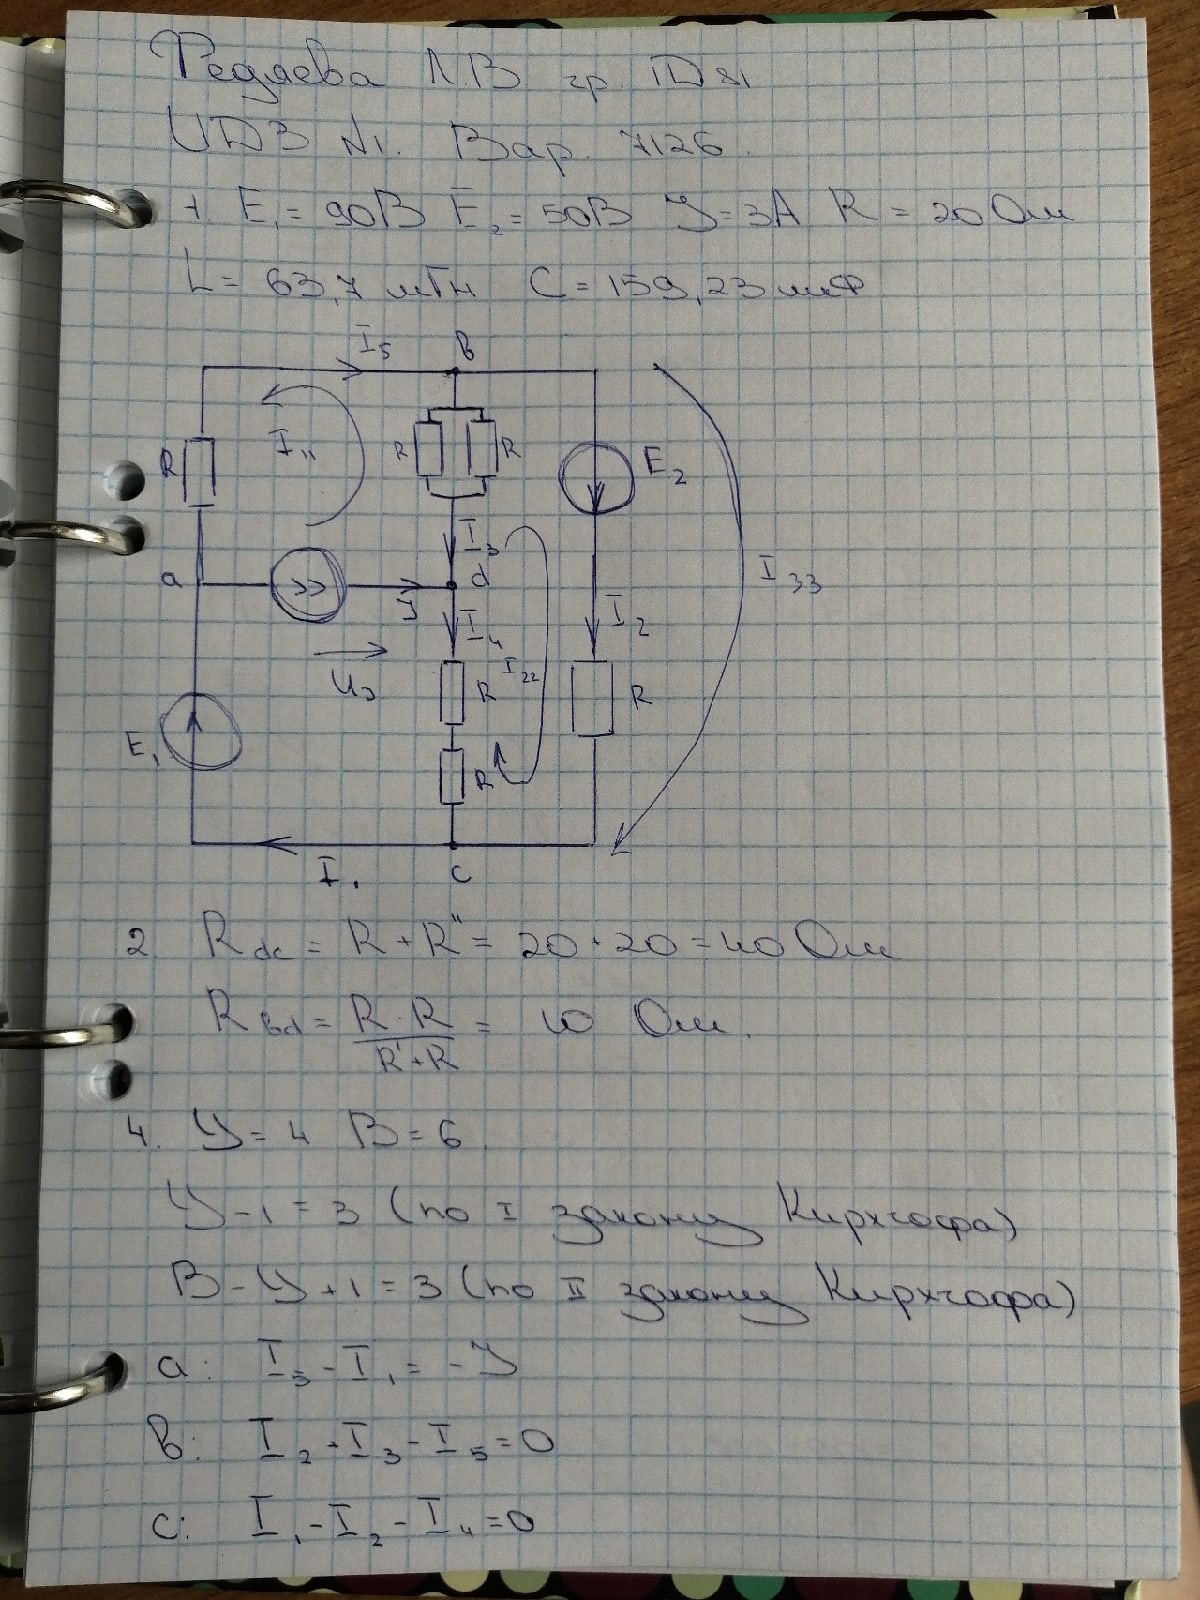 Редяева Л.В гр. 1Д81
ИДЗ №1. Вар. 7126.
1. E₁ = 90В E₂ = 50В J = 3А R = 20 Ом
L = 63,7 мГн C = 159,23 мкФ
I₅ b
R I₁₁ R R E₂
I₃
a d I₃₃
J I₄ I₂
U_J R I₂₂ R
E₁ R
I₁ c
2. R_dc = R + R" = 20 + 20 = 40 Ом
R_bd = R · R / R' + R = 10 Ом.
4. У = 4 В = 6
У - 1 = 3 (по I закону Кирхгофа)
В - У + 1 = 3 (по II закону Кирхгофа)
a: I₅ - I₁ = - J
b: I₂ + I₃ - I₅ = 0
c: I₁ - I₂ - I₄ = 0